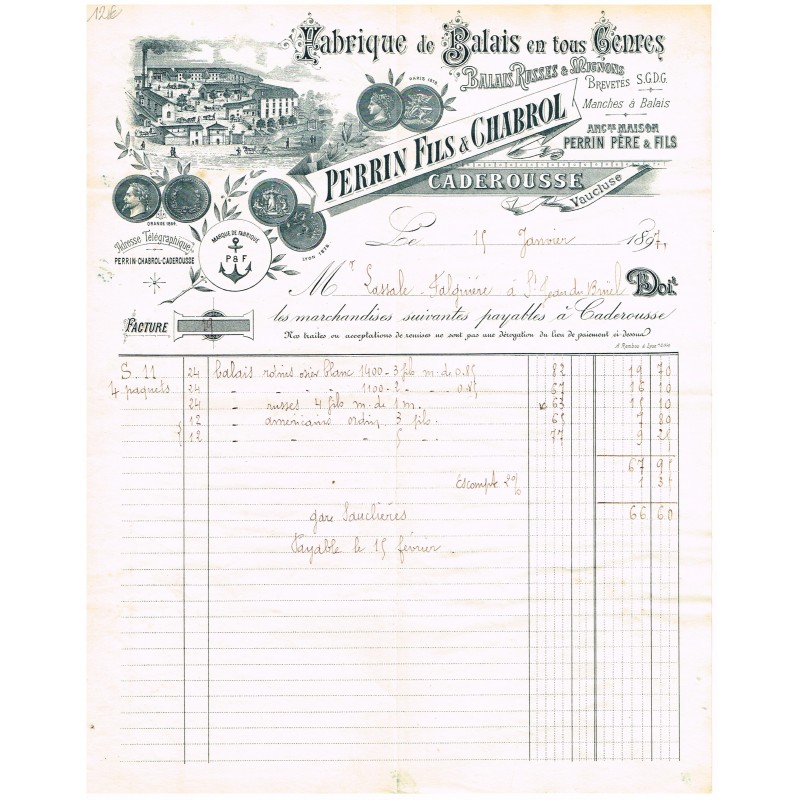 12€
Fabrique de Balais en tous Genres
BALAIS RUSSES & MIGNONS
BREVETÉS S.G.D.G.
Manches à Balais
PARIS 1878
PERRIN FILS & CHABROL
ANCNE MAISON
PERRIN PÈRE & FILS
CADEROUSSE
Vaucluse
ORANGE 1864
LYON 1872
Adresse Télégraphique
PERRIN-CHABROL-CADEROUSSE
MARQUE DE FABRIQUE
P & F
Le 15 Janvier 1897
Mr Lassale-Falguière à St Jean du Bruel Doit
les marchandises suivantes payables à Caderousse
FACTURE
Nos traites ou acceptations de remises ne sont pas une dérogation du lieu de paiement ci dessus
S. 11 24 balais rdnis osier blanc 1400 - 3 fils m. de 0.85 82 19 70
4 paquets 24 " " " 1100 - 2 " " 0.85 67 16 10
24 " russes 4 fils m. de 1 m. 63 15 10
12 " américains ordin. 3 fils. 65 7 80
12 " " " 5 " 77 9 25
67 95
Escompte 2 % 1 35
66 60
gare Sauclières
Payable le 15 février